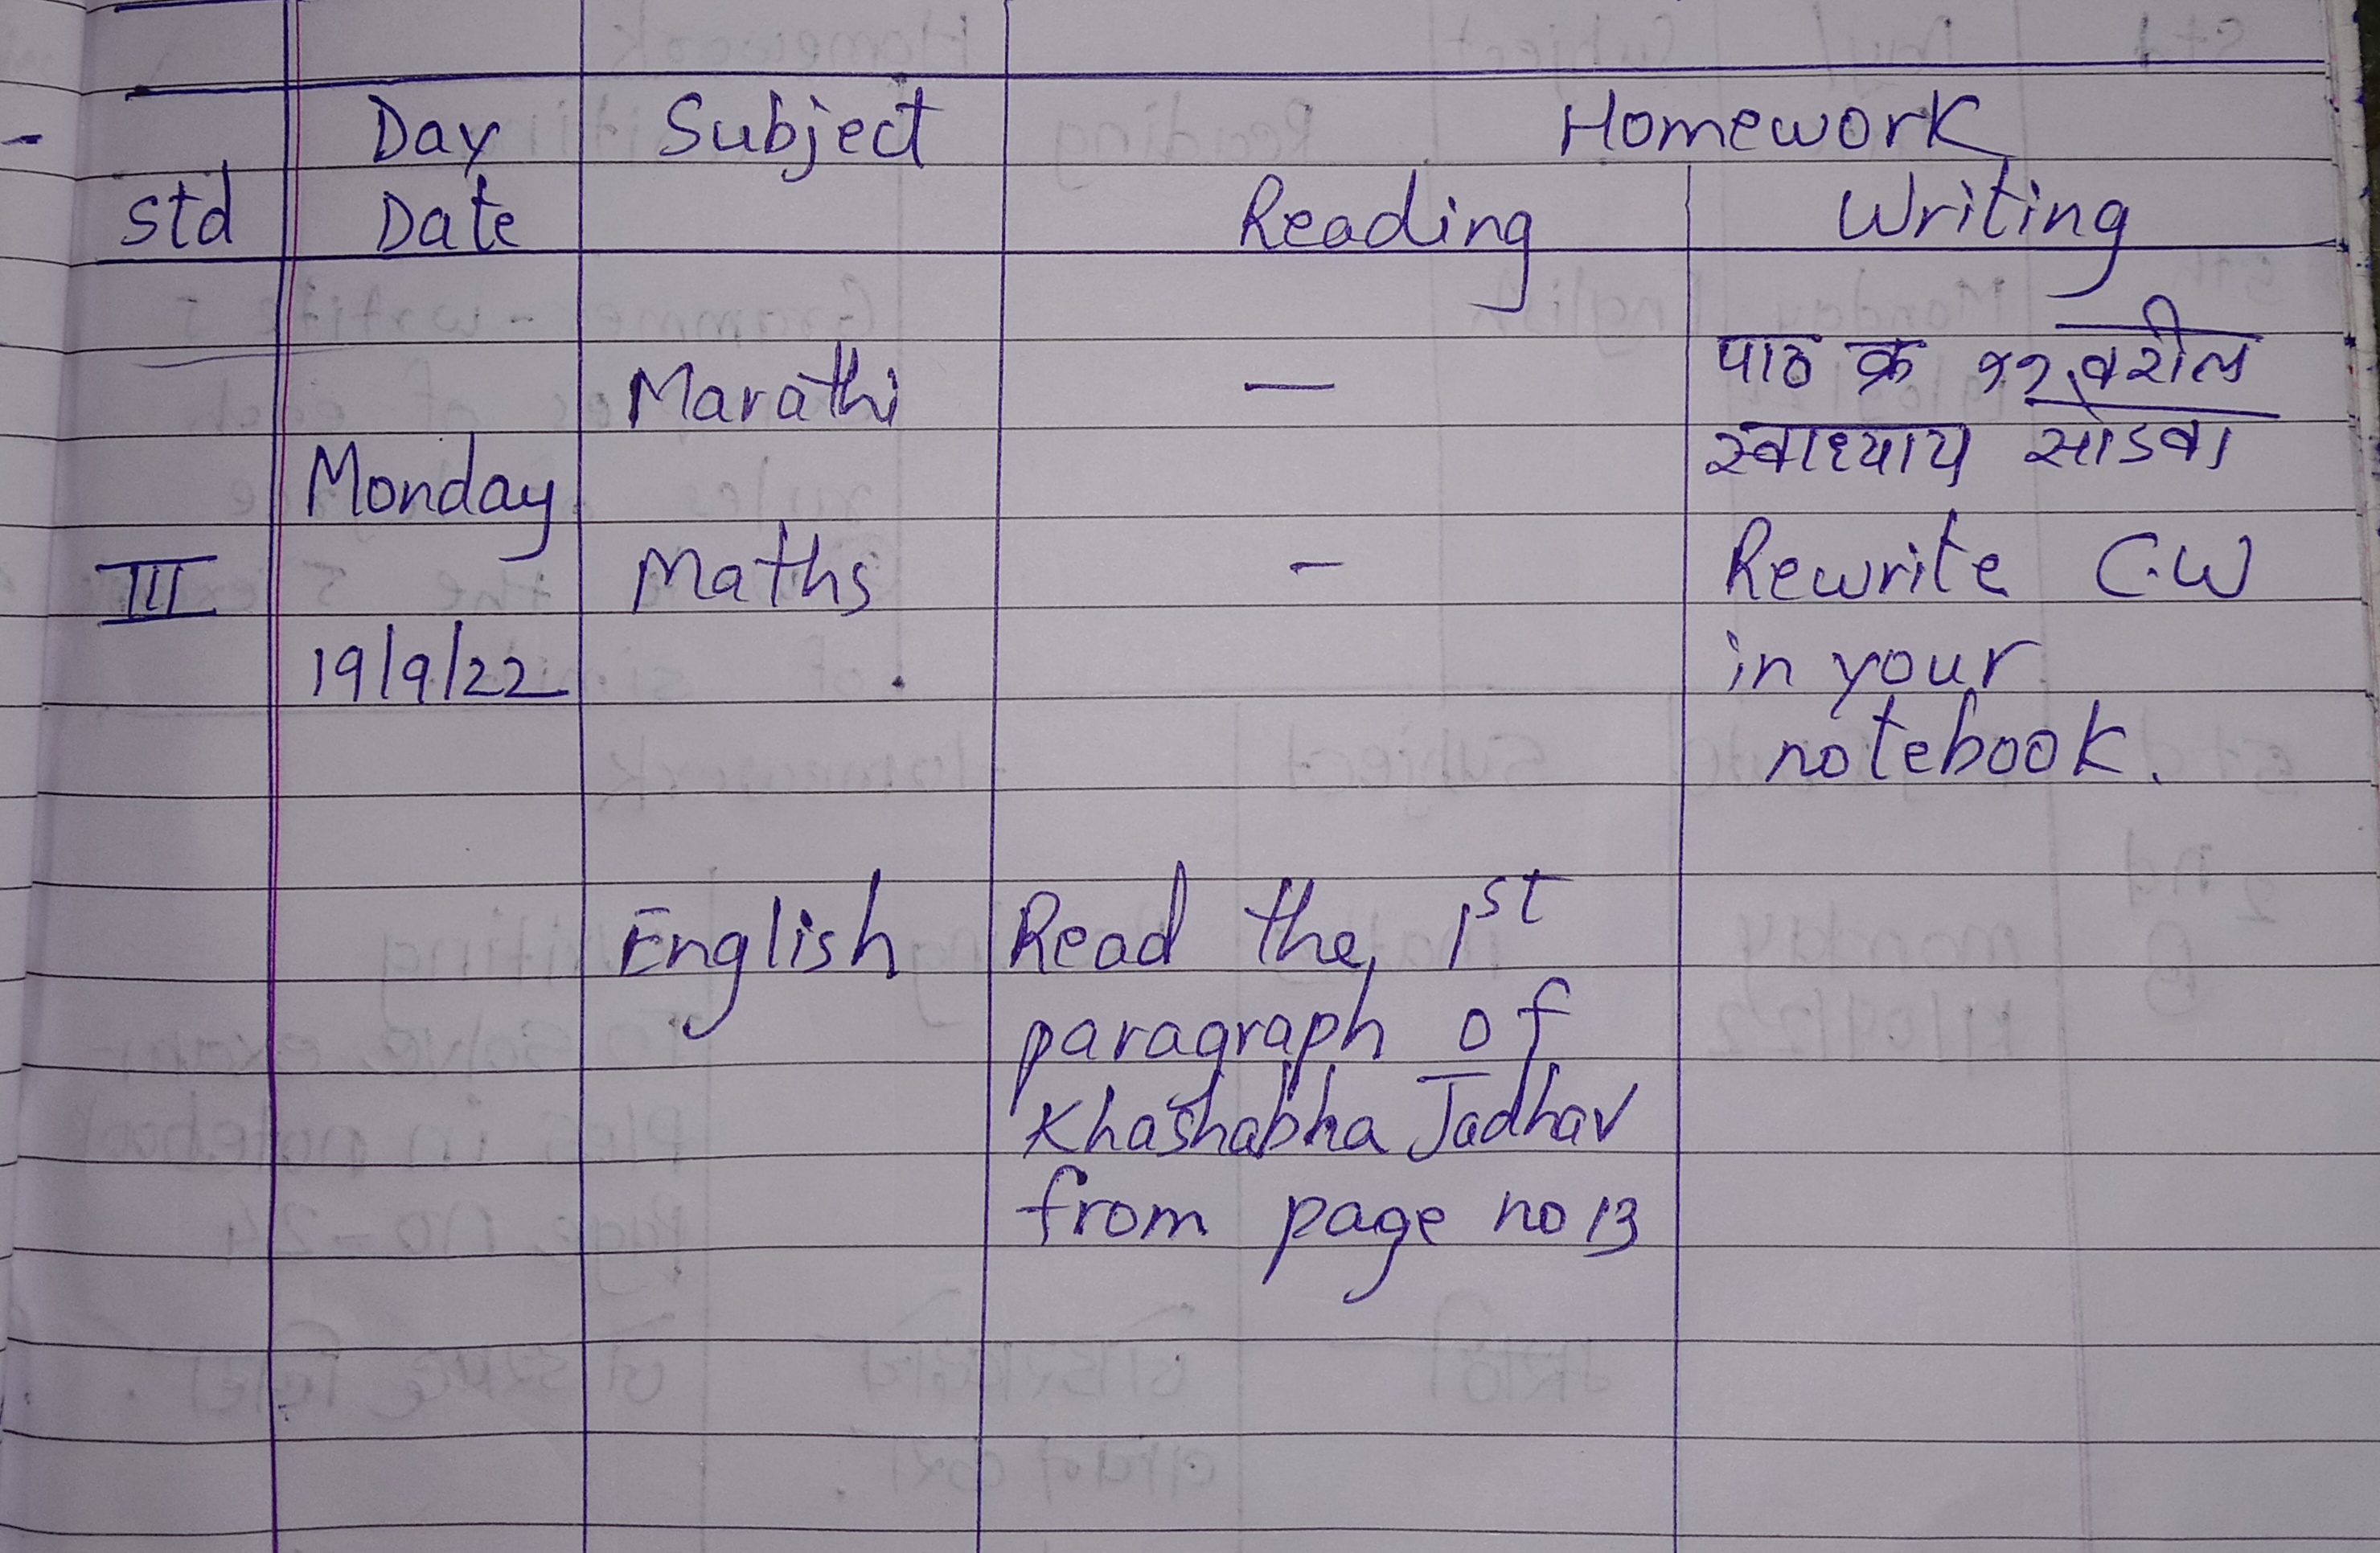 Day Subject Homework
Std Date Reading Writing
Marathi — पाठ क्र ११ वरील
स्वाध्याय सोडवा
Monday
III Maths - Rewrite C.W
19/9/22 in your
notebook.
English Read the 1st
paragraph of
Khashabha Jadhav
from page no 13